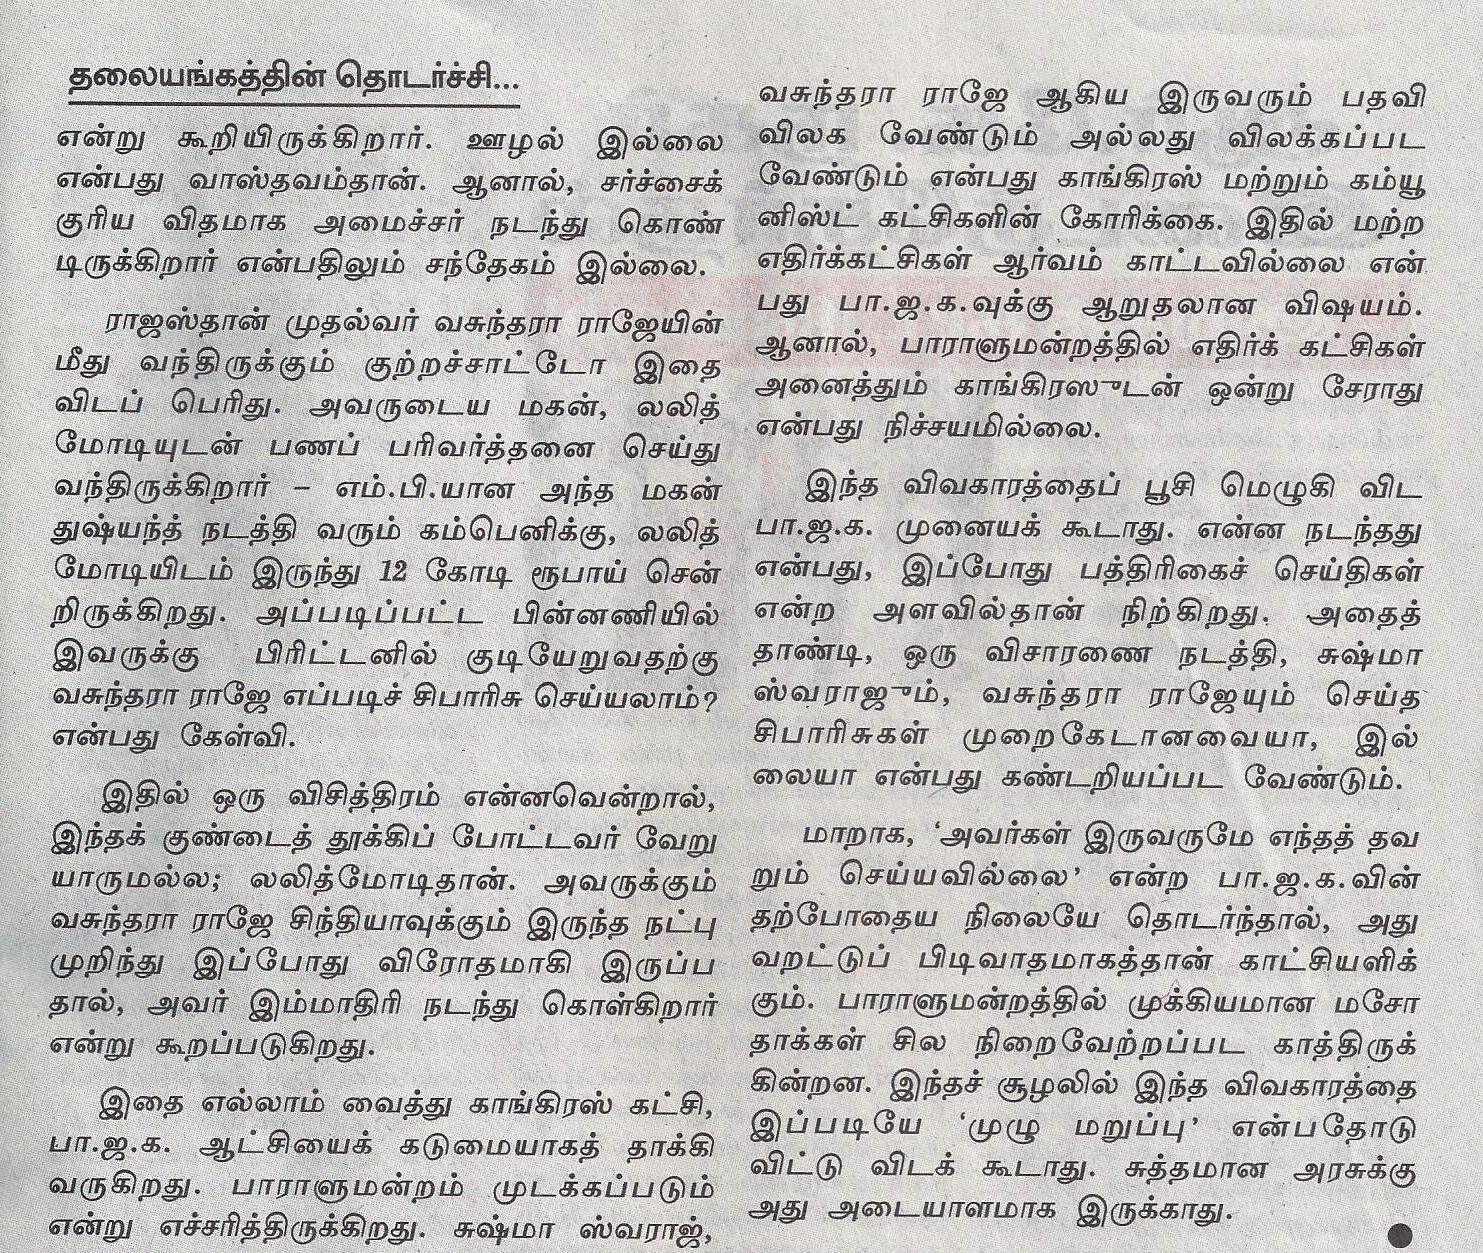 தலையங்கத்தின் தொடர்ச்சி...
என்று கூறியிருக்கிறார். ஊழல் இல்லை
என்பது வாஸ்தவம்தான். ஆனால், சர்ச்சைக்
குரிய விதமாக அமைச்சர் நடந்து கொண்
டிருக்கிறார் என்பதிலும் சந்தேகம் இல்லை.
ராஜஸ்தான் முதல்வர் வசுந்தரா ராஜேயின்
மீது வந்திருக்கும் குற்றச்சாட்டோ இதை
விடப் பெரிது. அவருடைய மகன், லலித்
மோடியுடன் பணப் பரிவர்த்தனை செய்து
வந்திருக்கிறார் – எம்.பி.யான அந்த மகன்
துஷ்யந்த் நடத்தி வரும் கம்பெனிக்கு, லலித்
மோடியிடம் இருந்து 12 கோடி ரூபாய் சென்
றிருக்கிறது. அப்படிப்பட்ட பின்னணியில்
இவருக்கு பிரிட்டனில் குடியேறுவதற்கு
வசுந்தரா ராஜே எப்படிச் சிபாரிசு செய்யலாம்?
என்பது கேள்வி.
இதில் ஒரு விசித்திரம் என்னவென்றால்,
இந்தக் குண்டைத் தூக்கிப் போட்டவர் வேறு
யாருமல்ல; லலித்மோடிதான். அவருக்கும்
வசுந்தரா ராஜே சிந்தியாவுக்கும் இருந்த நட்பு
முறிந்து இப்போது விரோதமாகி இருப்ப
தால், அவர் இம்மாதிரி நடந்து கொள்கிறார்
என்று கூறப்படுகிறது.
இதை எல்லாம் வைத்து காங்கிரஸ் கட்சி,
பா.ஜ.க. ஆட்சியைக் கடுமையாகத் தாக்கி
வருகிறது. பாராளுமன்றம் முடக்கப்படும்
என்று எச்சரித்திருக்கிறது. சுஷ்மா ஸ்வராஜ்,
வசுந்தரா ராஜே ஆகிய இருவரும் பதவி
விலக வேண்டும் அல்லது விலக்கப்பட
வேண்டும் என்பது காங்கிரஸ் மற்றும் கம்யூ
னிஸ்ட் கட்சிகளின் கோரிக்கை. இதில் மற்ற
எதிர்க்கட்சிகள் ஆர்வம் காட்டவில்லை என்
பது பா.ஜ.க.வுக்கு ஆறுதலான விஷயம்.
ஆனால், பாராளுமன்றத்தில் எதிர்க் கட்சிகள்
அனைத்தும் காங்கிரஸுடன் ஒன்று சேராது
என்பது நிச்சயமில்லை.
இந்த விவகாரத்தைப் பூசி மெழுகி விட
பா.ஜ.க. முனையக் கூடாது. என்ன நடந்தது
என்பது, இப்போது பத்திரிகைச் செய்திகள்
என்ற அளவில்தான் நிற்கிறது. அதைத்
தாண்டி, ஒரு விசாரணை நடத்தி, சுஷ்மா
ஸ்வராஜும், வசுந்தரா ராஜேயும் செய்த
சிபாரிசுகள் முறைகேடானவையா, இல்
லையா என்பது கண்டறியப்பட வேண்டும்.
மாறாக, ‘அவர்கள் இருவருமே எந்தத் தவ
றும் செய்யவில்லை’ என்ற பா.ஜ.க.வின்
தற்போதைய நிலையே தொடர்ந்தால், அது
வறட்டுப் பிடிவாதமாகத்தான் காட்சியளிக்
கும். பாராளுமன்றத்தில் முக்கியமான மசோ
தாக்கள் சில நிறைவேற்றப்பட காத்திருக்
கின்றன. இந்தச் சூழலில் இந்த விவகாரத்தை
இப்படியே ‘முழு மறுப்பு’ என்பதோடு
விட்டு விடக் கூடாது. சுத்தமான அரசுக்கு
அது அடையாளமாக இருக்காது.